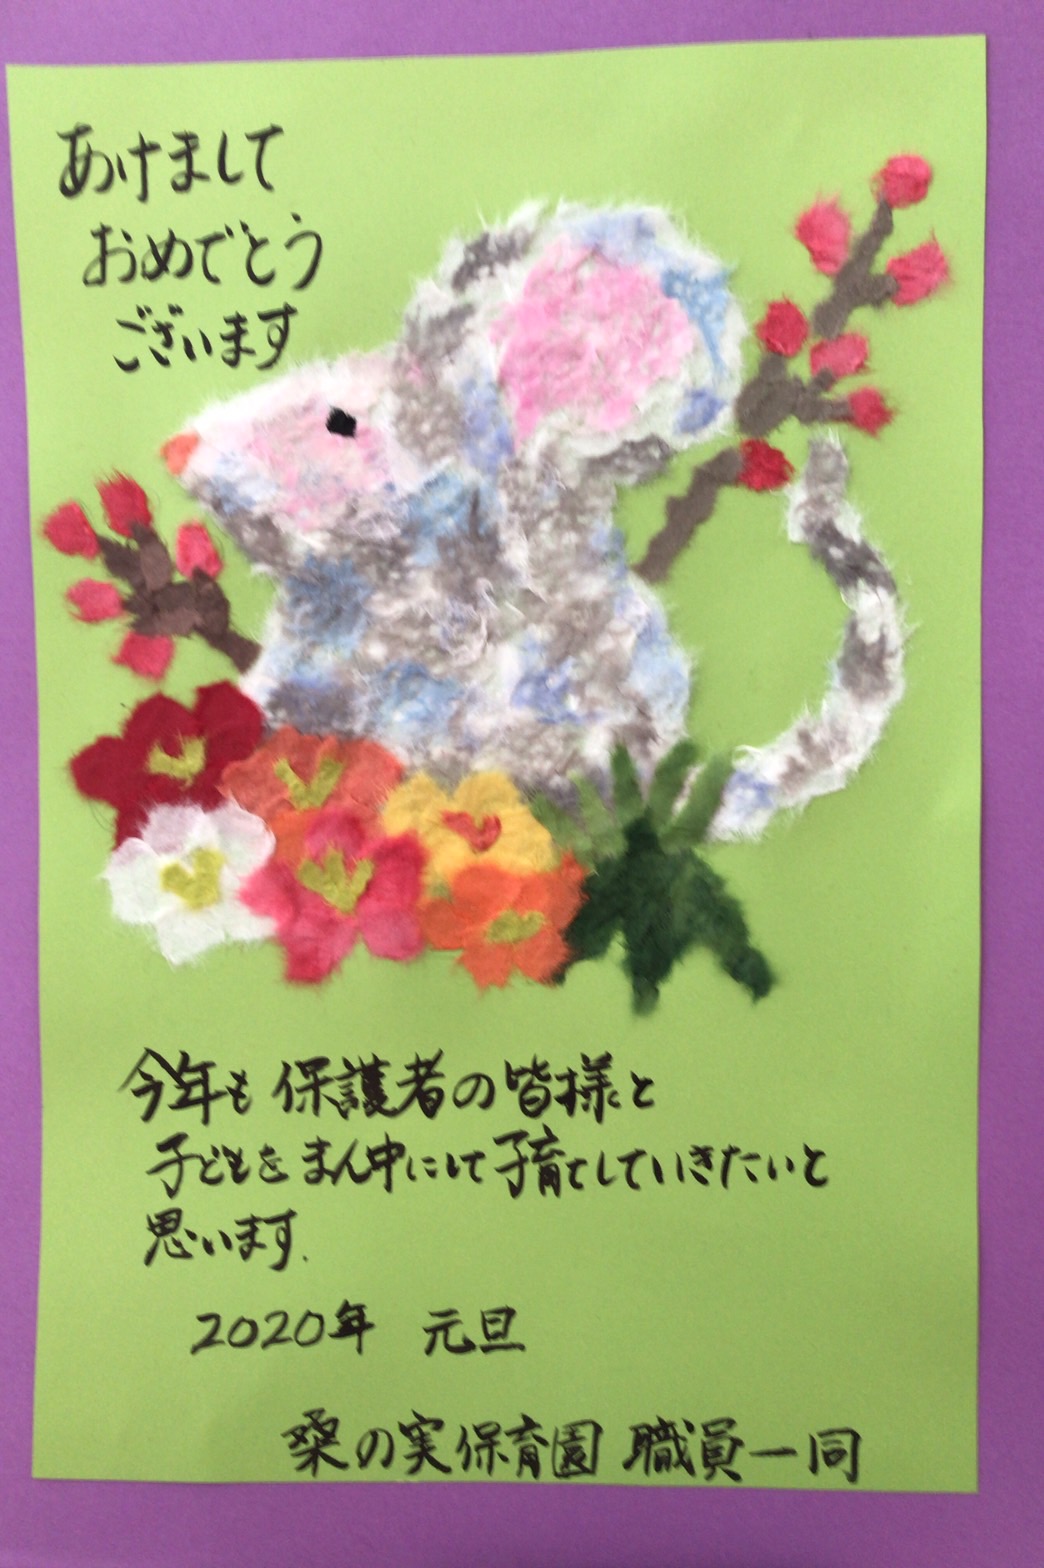 あけまして
おめでとう
ございます
今年も保護者の皆様と
子どもをまん中にして子育てしていきたいと
思います.
2020年 元旦
桑の実保育園 職員一同